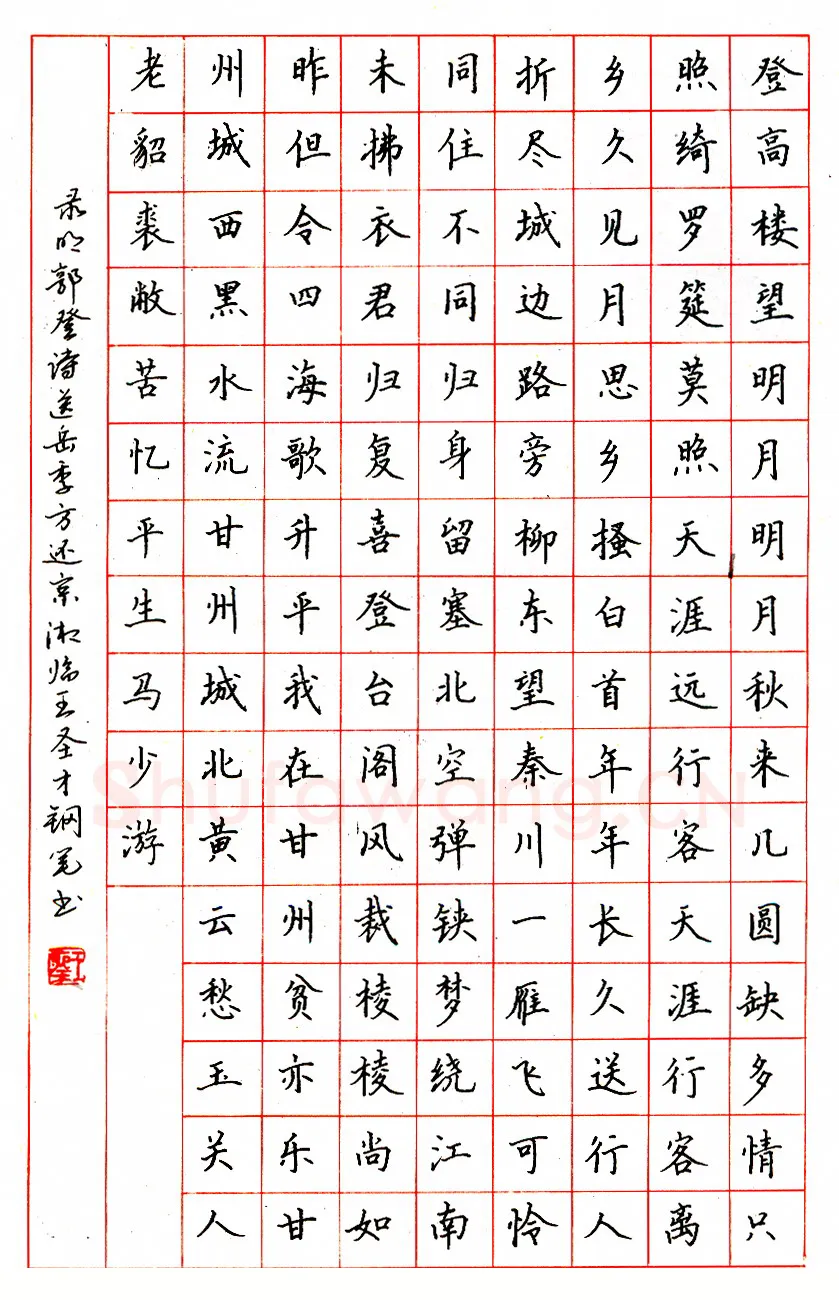 登高楼望明月明月秋来几圆缺多情只
照绮罗筵莫照天涯远行客天涯行客离
乡久见月思乡搔白首年年长久送行人
折尽城边路旁柳东望秦川一雁飞可怜
同住不同归身留塞北空弹铗梦绕江南
未拂衣君归复喜登台阁风裁棱棱尚如
昨但令四海歌升平我在甘州贫亦乐甘
州城西黑水流甘州城北黄云愁玉关人
老貂裘敝苦忆平生马少游
录明郭登诗送岳季方还京湘临王圣才钢笔书
Shufawang.CN